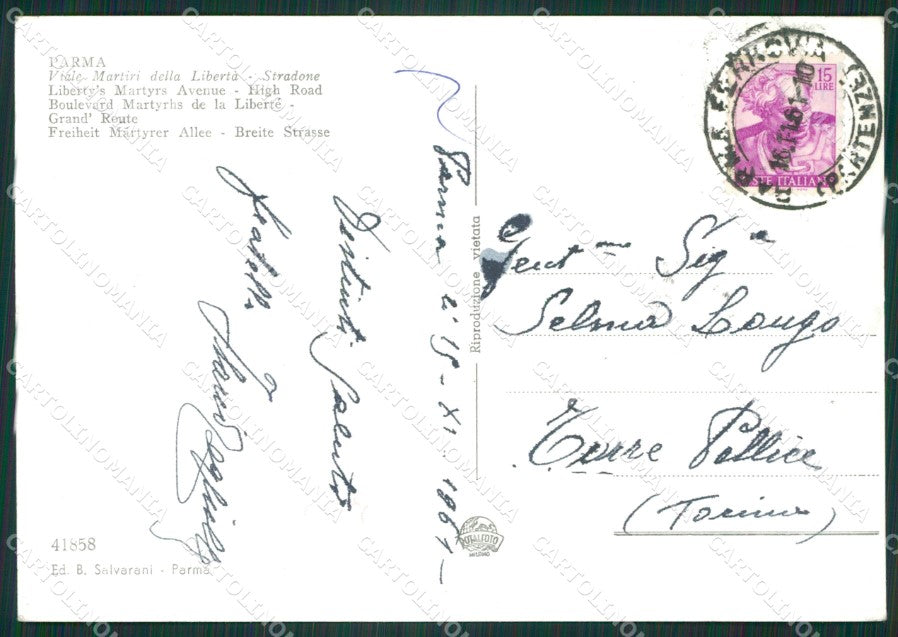 PARMA
Viale Martiri della Libertà - Stradone
Liberty's Martyrs Avenue - High Road
Boulevard Martyrhs de la Liberté -
Grand' Route
Freiheit Märtyrer Allee - Breite Strasse
Parma li 15 - XI 1961
Distinti Saluti
41858
Ed. B. Salvarani - Parma
Riproduzione vietata
PARMA FERROVIA
(PARTENZE)
16.11.61-10
15
LIRE
POSTE ITALIANE
Gent.me Sig.a
Selma Longo
Torre Pellice
(Torino)
CARTOLINOMANIA